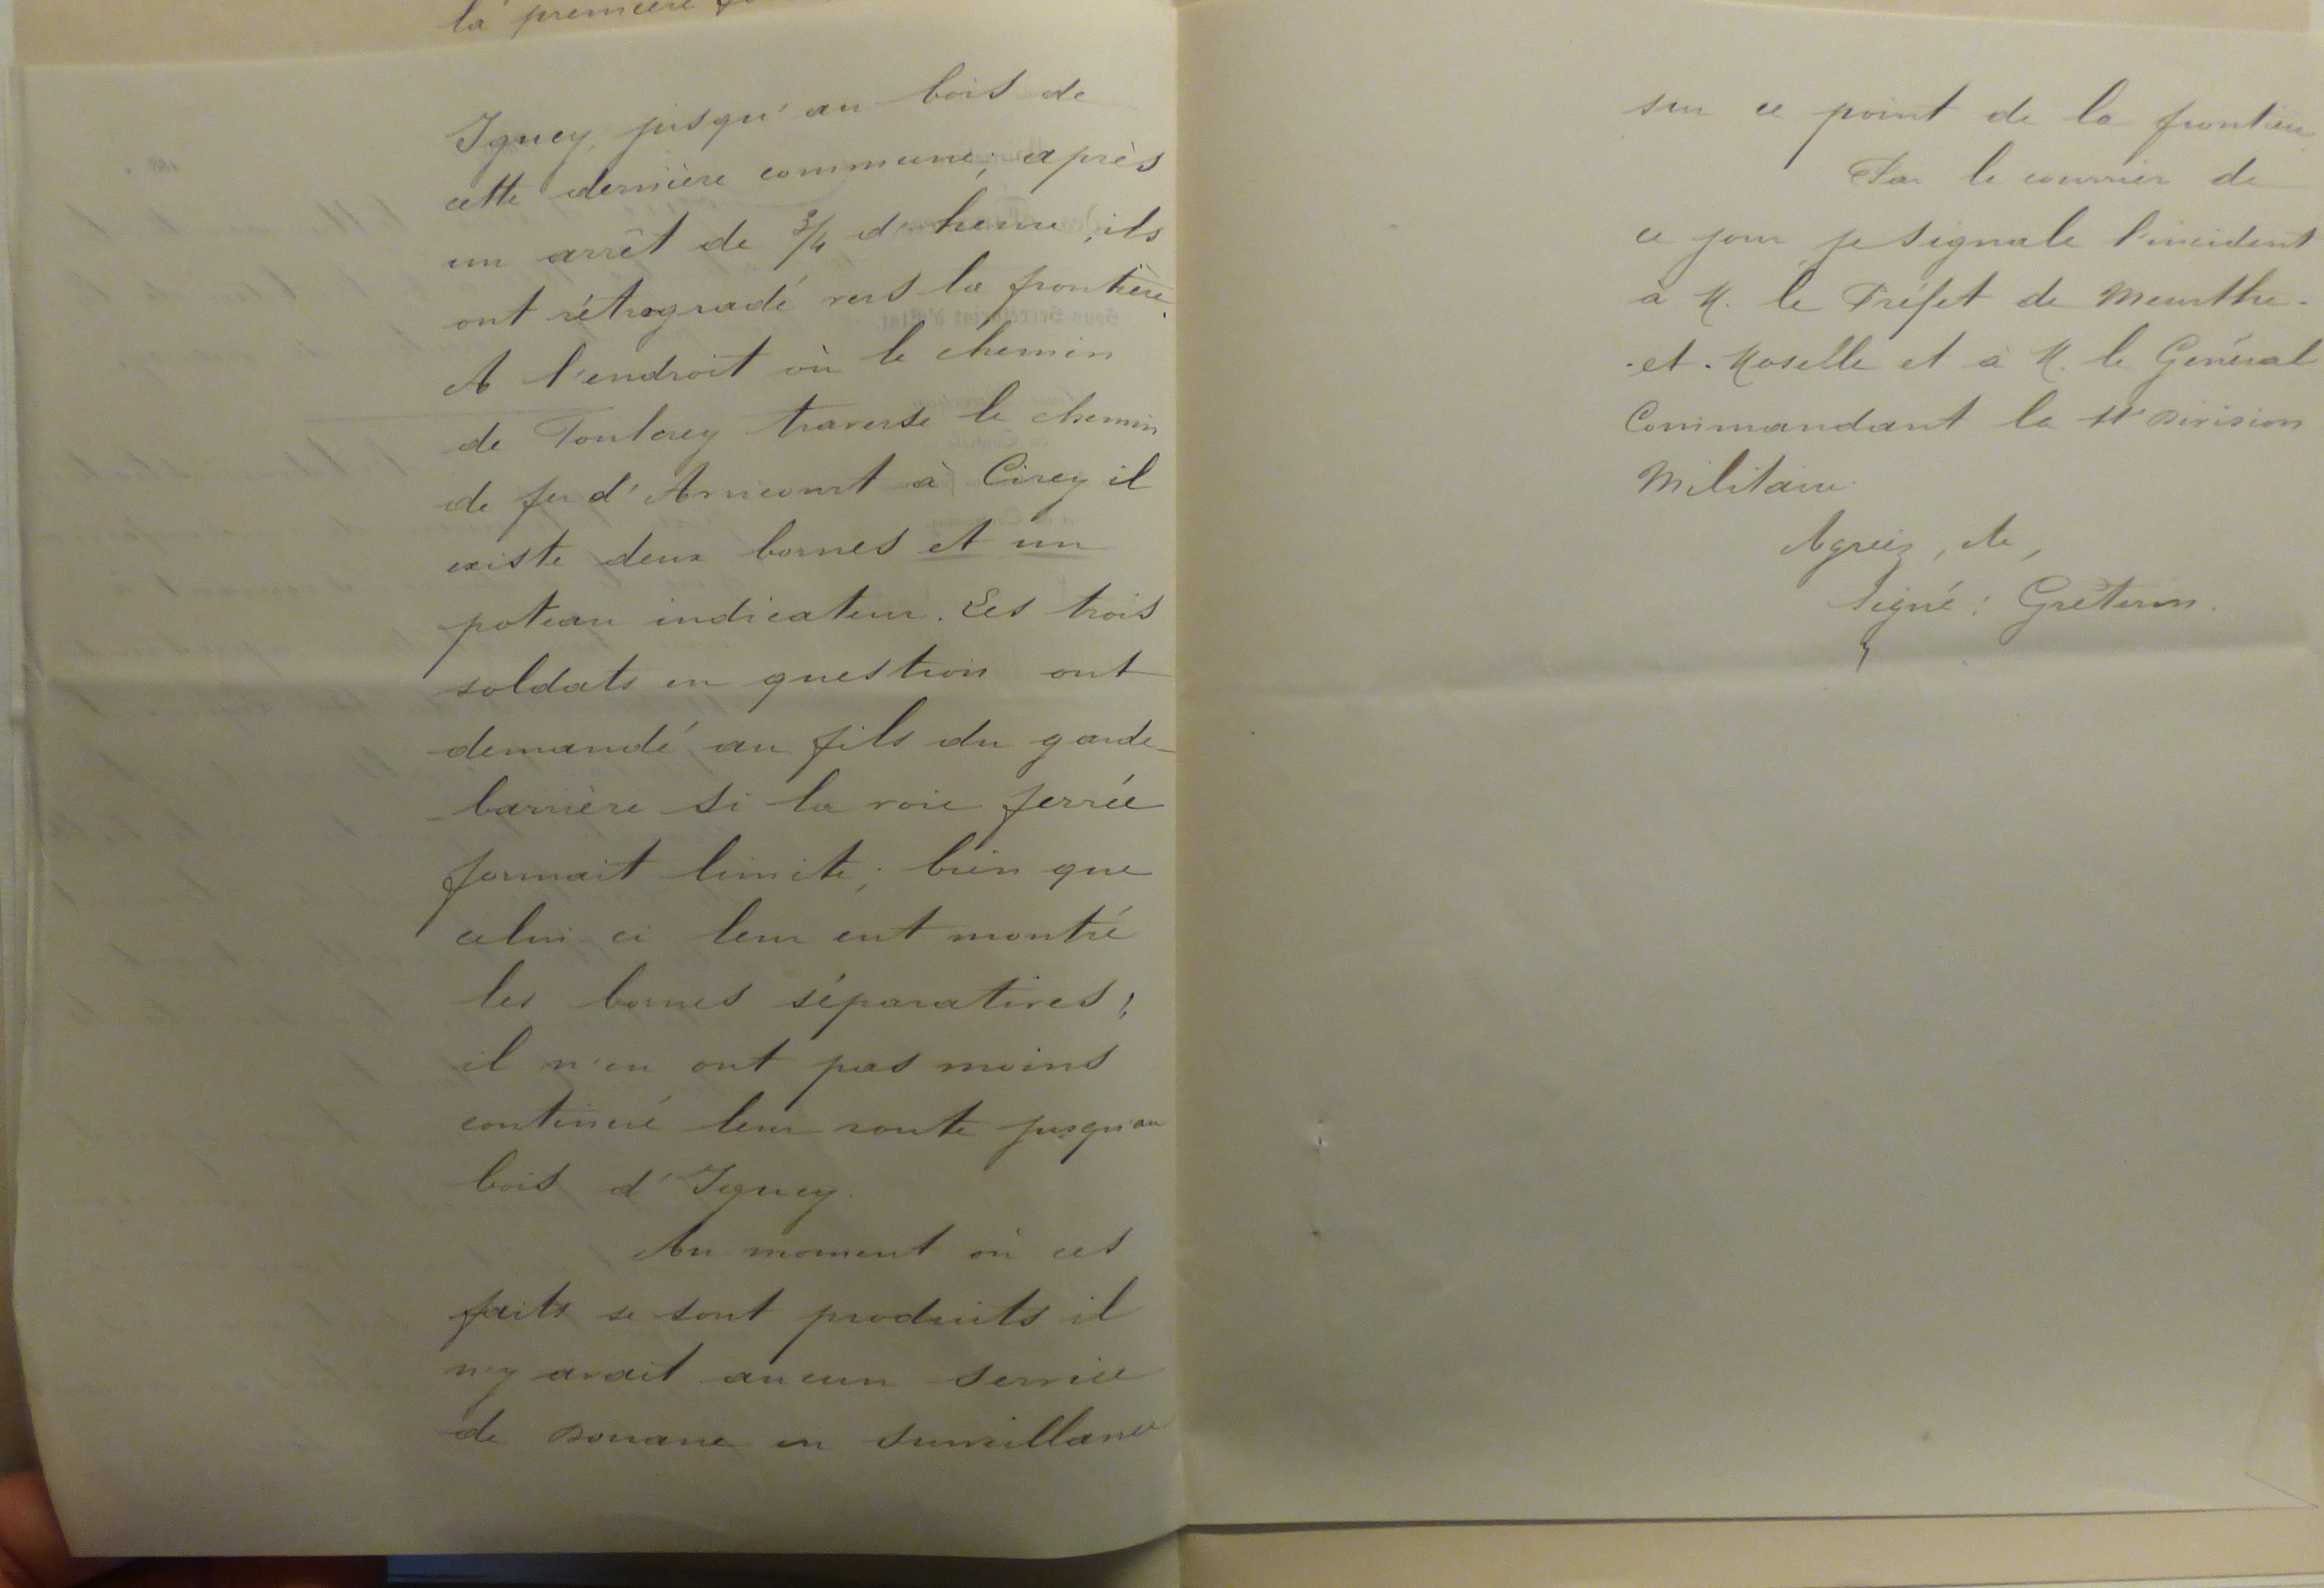 la première
Igney, jusqu'au bois de
cette dernière commune; après
un arrêt de 3/4 d'heure, ils
ont rétrogradé vers la frontière.
A l'endroit où le chemin
de Foulcrey traverse le chemin
de fer d'Avricourt à Cirey il
existe deux bornes et un
poteau indicateur. Les trois
soldats en question ont
demandé au fils du garde-
-barrière si la voie ferrée
formait limite; bien que
celui-ci leur eut montré
les bornes séparatives,
il n'en ont pas moins
continué leur route jusqu'au
bois d'Igney.
Au moment où ces
faits se sont produits il
n'y avait aucun service
de Douane en surveillance
sur ce point de la frontière
Par le courrier de
ce jour je signale l'incident
à M. le Préfet de Meurthe-
-et-Moselle et à M. le Général
Commandant la 11e Division
Militaire.
Agréez, etc,
Signé: Gréterin.